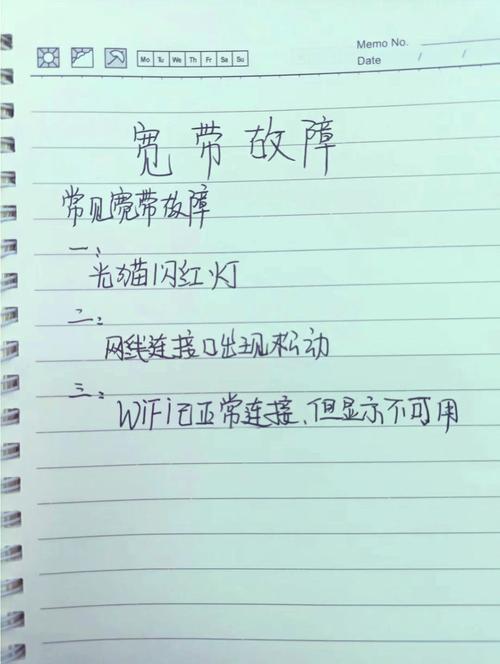 Memo No.
Mo Tu We Th Fr Sa Su
Date / /
宽带故障
常见宽带故障
一、
光猫闪红灯
二:
网线连接口出现松动
三:
WiFi已正常连接、但显示不可用